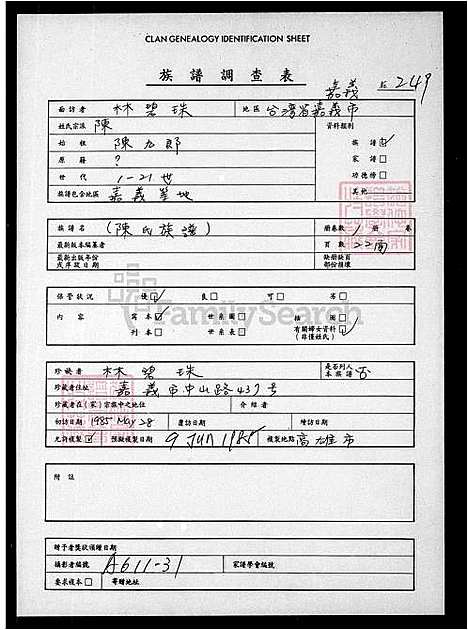 CLAN GENEALOGY IDENTIFICATION SHEET
族譜調查表
嘉義 249
面訪者 林碧珠 地區 台灣省嘉義市
姓氏宗派 陳 資料類別
始祖 陳九郎 族譜☑
原籍 ? 家譜□
世代 1-21世 功德榜□
族譜包含地區 嘉義等地 其他
族譜名 (陳氏族譜) 冊卷數 1 冊 卷
最新版本編纂者 頁數 22面
最新出版年份 缺冊缺頁
或序跋日期 部份損壞
保管狀況 優☑ 良□ 可□ 劣□
內容 寫本☑ 世系圖□ 插圖□
刊本□ 世系表□ 有關婦女資料☑
(非僅姓氏)
FamilySearch
珍藏者 林碧珠 是否列入本族譜 否
珍藏者住址 嘉義市中山路437号
珍藏者在(家)宗族中之地位 介紹者
初訪日期 1985 May 28 覆訪日期 續訪日期
允許複製☑ 預擬複製日期 9 JUN 1985 複製地點 高雄市
附註
贈予者獎狀頒贈日期
攝影者編號 A611-31 家譜學會編號
要求複本□ 寄贈地址